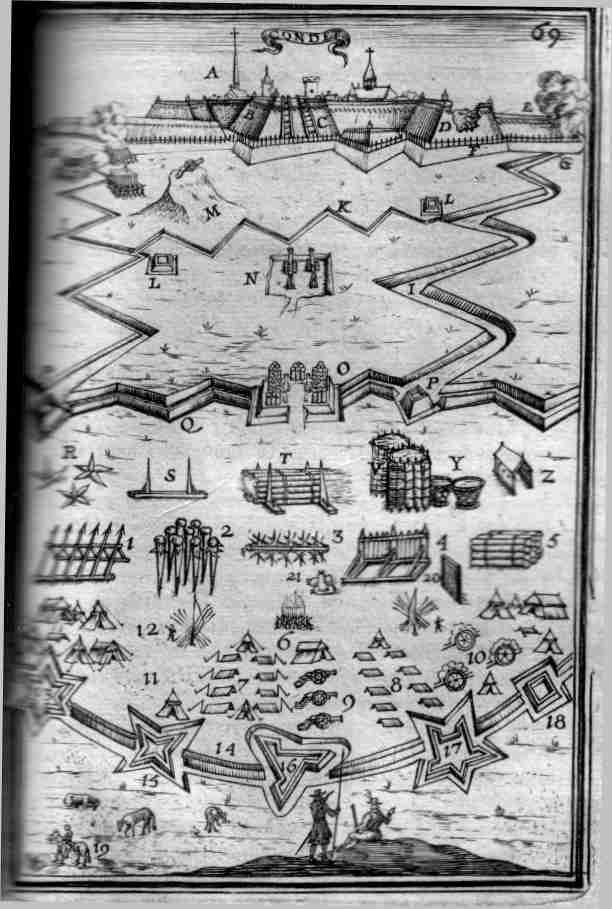 CONDEE
69
A
B C D E
F
G
M K L
L N I
O
P
Q
R S T V Y Z
1 2 3 4 5
21 20
12 6 10
11 7 8
9
14 17 18
15 16
19